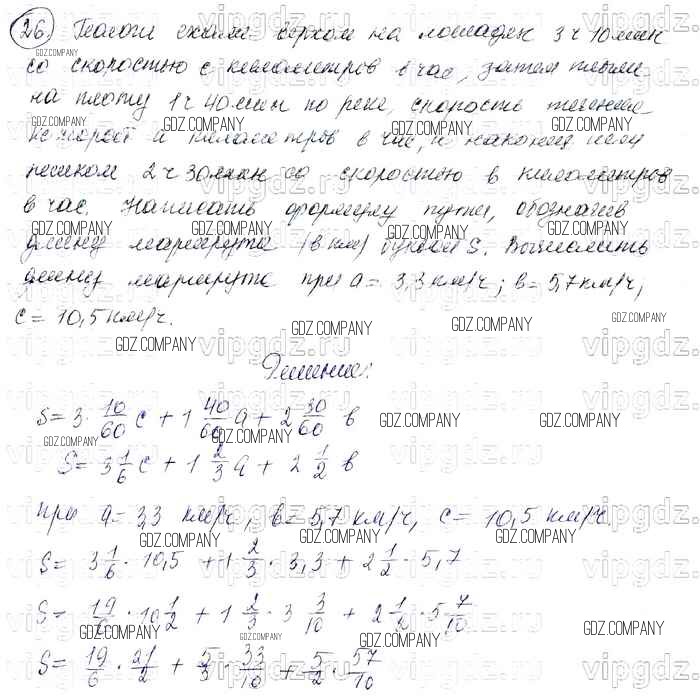 26 Геологи ехали верхом на лошадях 3 ч 10 мин
со скоростью с километров в час, затем плыли
на плоту 1 ч 40 мин по реке, скорость течения
которой а километров в час, и наконец шли
пешком 2 ч 30 мин со скоростью в километров
в час. Написать формулу пути, обозначив
длину маршрута (в км) буквой S. Вычислить
длину маршрута при а = 3,3 км/ч; в = 5,7 км/ч;
с = 10,5 км/ч.
Решение:
S = 3 · 10/60 с + 1 40/60 а + 2 30/60 в
S = 3 1/6 с + 1 2/3 а + 2 1/2 в
при а = 3,3 км/ч, в = 5,7 км/ч, с = 10,5 км/ч
S = 3 1/6 · 10,5 + 1 2/3 · 3,3 + 2 1/2 · 5,7
S = 19/6 · 10 1/2 + 1 2/3 · 3 3/10 + 2 1/2 · 5 7/10
S = 19/6 · 21/2 + 5/3 · 33/10 + 5/2 · 57/10
GDZ.COMPANY
vipgdz.ru